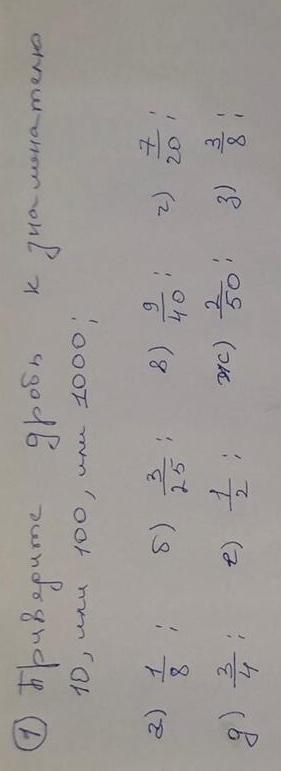 ① Приведите дробь к знаменателю
10, или 100, или 1000;
а) 1/8 ; б) 3/25 ; в) 9/40 ; г) 7/20 ;
д) 3/4 ; е) 1/2 ; ж) 2/50 ; з) 3/8 ;